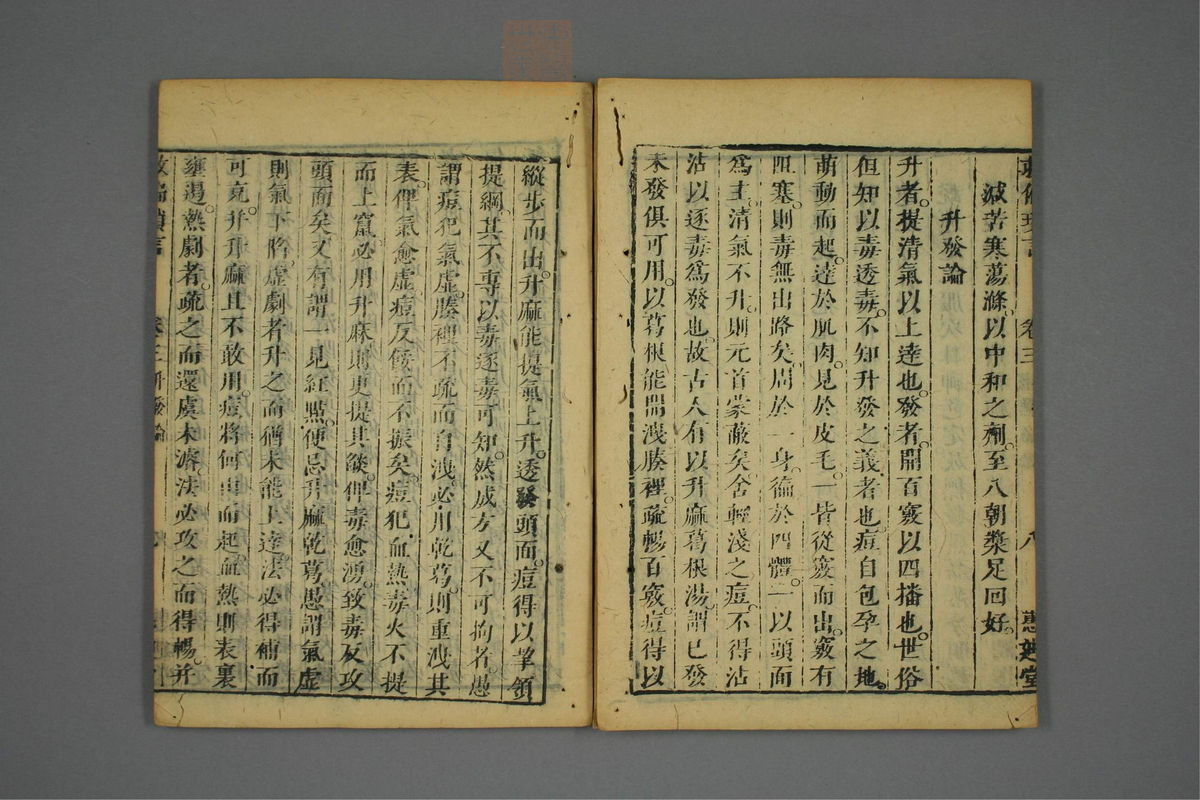 救偏瑣言 卷三 八 惠迪堂
減苦寒蕩滌。以中和之劑。至八朝漿足回好。
升發論
升者。提清氣以上達也。發者。開百竅以四播也。世俗
但知以毒透毒。不知升發之義者也。痘自包孕之地。
萌動而起。達於肌肉。見於皮毛。一皆從竅而出。竅有
阻塞。則毒無出路矣。周於一身。徧於四體。一以頭面
爲主。清氣不升。則元首蒙蔽矣。舍輕淺之痘。不得沾
沾以逐毒爲發也。故古人有以升麻葛根湯。謂已發
未發俱可用。以葛根能開洩腠裡。疏暢百竅。痘得以
縱步而出。升麻能提氣上升。透發頭面。痘得以挈領
提綱。其不專以毒逐毒可知。然成方又不可拘者。愚
謂痘犯氣虛。腠裡不疏而自洩。必用乾葛。則重洩其
表。俾氣愈虛。痘反倐而不振矣。痘犯血熱。毒火不提
而上竄。必用升麻。則更提其燄。俾毒愈湧。致毒反攻
頭面矣。又有謂一見紅點。便忌升麻乾葛。愚謂氣虛
則氣下陷。虛劇者升之而猶未能上達。法必得補而
可克。并升麻且不敢用。痘將何由而起。血熱則表裏
壅遏。熱劇者。疏之而還虞未濟。法必攻之而得暢。并
救偏瑣言 卷三升發論 九